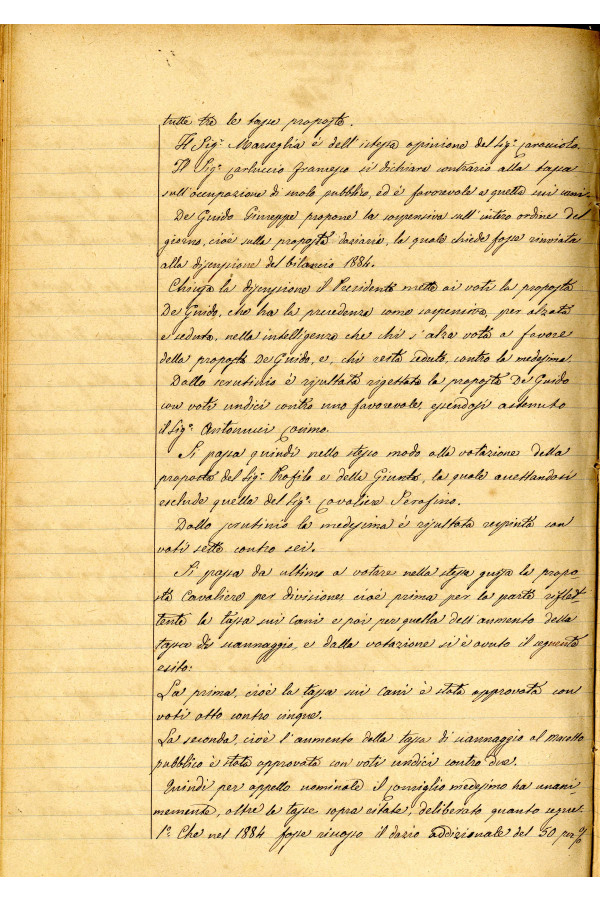 tutte tre le tasse proposte.
Il Sig.r Marseglia è dell'istessa opinione del Sig.r Caracciolo.
Il Sig.r Carluccio Francesco si dichiara contrario alla tassa
sull'occupazione di suolo pubblico, ed è favorevole a quella sui cani.
De Guido Giuseppe propone la sospensiva sull'intero ordine del
giorno, cioè sulla proposta daziaria, la quale chiede fosse rinviata
alla discussione del bilancio 1884.
Chiusa la discussione il Presidente mette ai voti la proposta
De Guido, che ha la precedenza come sospensiva, per alzata
e seduta, nella intelligenza che chi s'alza vota a favore
della proposta De Guido, e, chi resta seduto, contro la medesima.
Dallo scrutinio è risultata rigettata la proposta De Guido
con voti undici contro uno favorevole, essendosi astenuto
il Sig.r Antonucci Cosimo.
Si passa quindi nello stesso modo alla votazione della
proposta del Sig.r Profilo e della Giunta, la quale accettandosi
esclude quella del Sig.r Cavaliere Serafino.
Dallo scrutinio la medesima è risultata respinta con
voti sette contro sei.
Si passa da ultimo a votare nella stessa guisa la propo-
sta Cavaliere per divisione, cioè prima per la parte riflet-
tente la tassa sui cani e poi per quella dell'aumento della
tassa di scannaggio, e dalla votazione si è avuto il seguente
esito:
La prima, cioè la tassa sui cani è stata approvata con
voti otto contro cinque.
La seconda, cioè l'aumento della tassa di scannaggio al macello
pubblico è stata approvata con voti undici contro due.
Quindi per appello nominale il Consiglio medesimo ha unani-
memente, oltre le tasse sopra citate, deliberato quanto segue.
1.º Che nel 1884 fosse riscosso il dazio addizionale del 50 per %